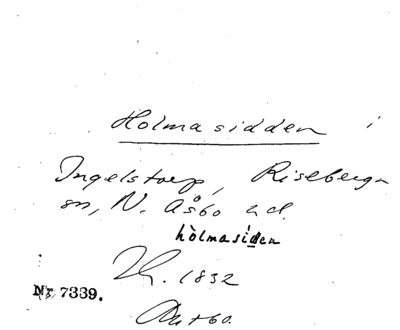 Holmasidden i
Ingelstorp, Riseberga
sn, N. Åsbo hd.
hòlmasíden
1832
Nr 7339.